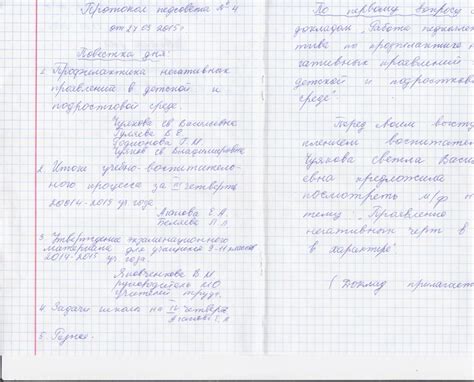 Протокол педсовета № 4
от 27.03.2015г
Повестка дня:
1. Профилактика негативных
проявлений в детской и
подростковой среде.
Чуякова Св. Васильевна
Гуляева В. Е.
Родионова Г. М.
Чуянов Св. Владимировна
2. Итоги учебно-воспитатель-
ного процесса за III четверть
20014-2015 уч года.
Агапова Е. А.
Беляева Н. Л.
3. Утверждение экзаменационного
материала для учащихся 9-11 классов
2014-2015 уч. года.
Яновченкова В. М
руководитель МО
учителей труд.
4. Задачи школы на IV четверть
Агапова Е. А.
5. Разное.
По первому вопросу с
докладом "Работа педколлек
тива по профилактике не
гативных проявлений
детской и подростков
среде"
Перед своим высту
плением воспитател
Чуякова Светла Васил
евна предложила
посмотреть м/ф
тему: "Проявлени
негативных черт в
в характере"
(Доклад прилагает